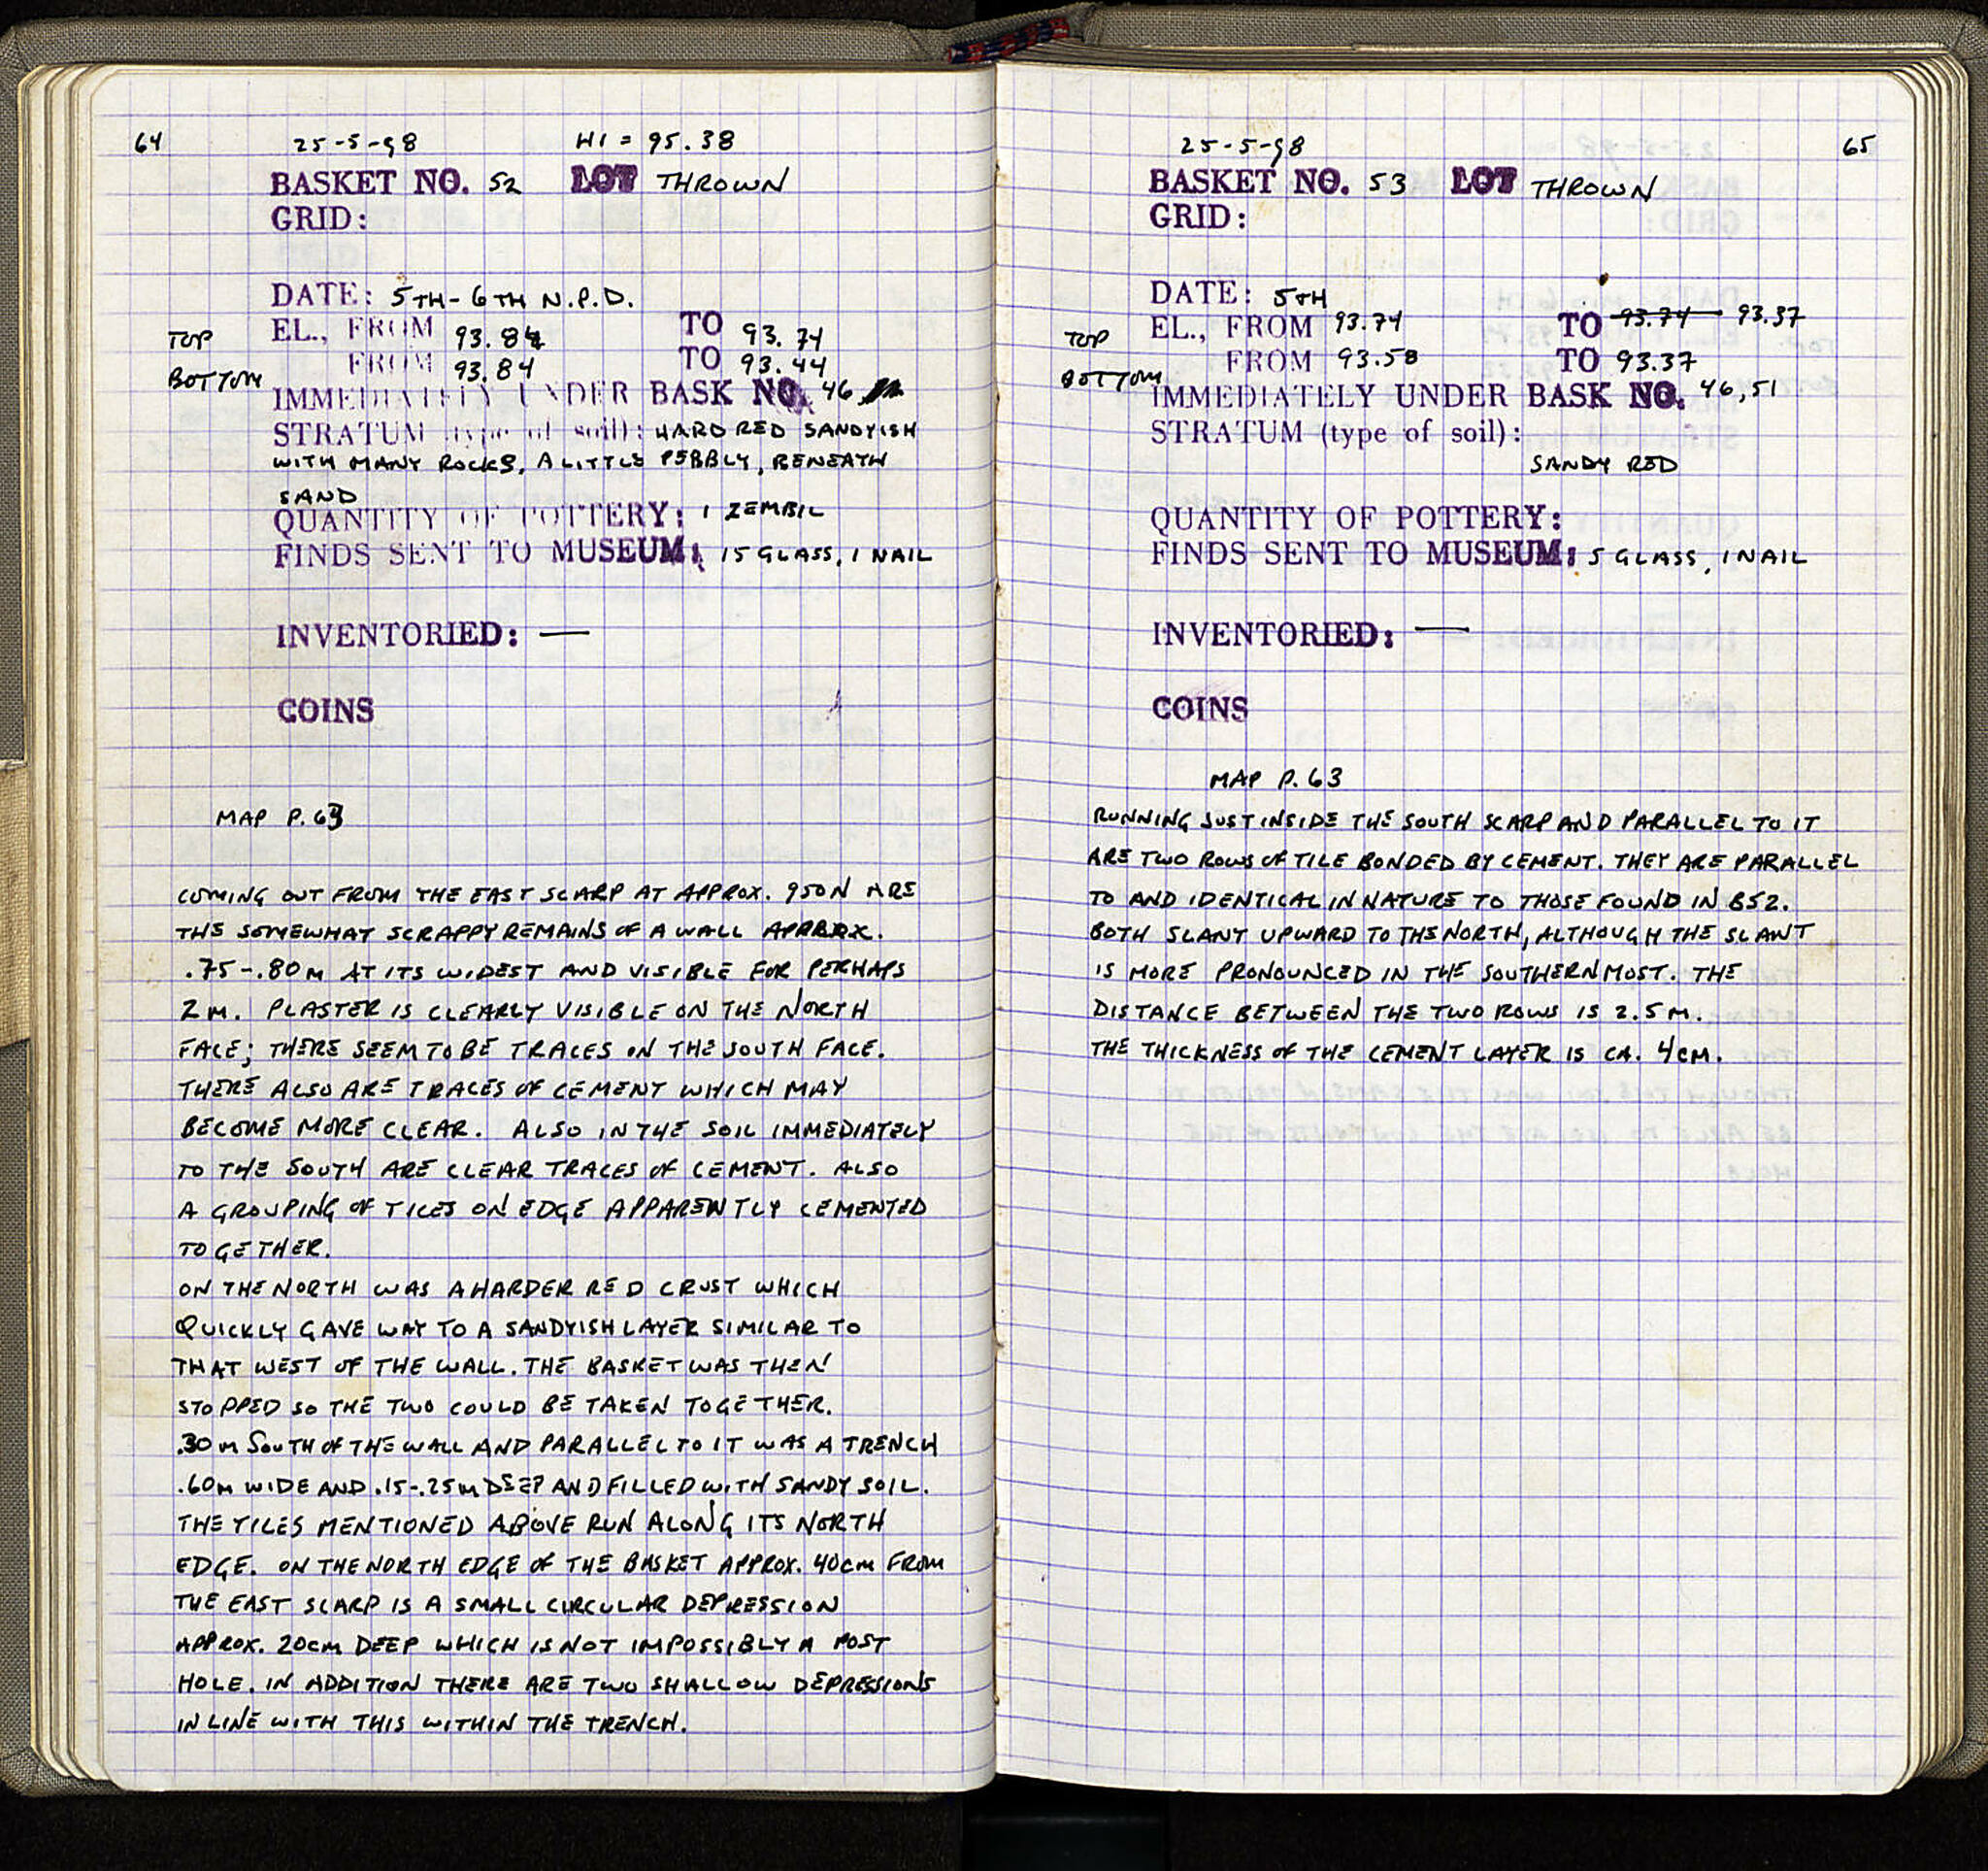 64 25-5-98 HI = 95.38
BASKET NO. 52 LOT THROWN
GRID:
DATE: 5TH-6TH N.P.D.
TOP EL., FROM 93.84 TO 93.74
BOTTOM FROM 93.84 TO 93.44
IMMEDIATELY UNDER BASK NO. 46
STRATUM (type of soil): HARD RED SANDYISH
WITH MANY ROCKS, A LITTLE PEBBLY, BENEATH
SAND
QUANTITY OF POTTERY: 1 ZEMBIL
FINDS SENT TO MUSEUM: 15 GLASS, 1 NAIL
INVENTORIED: —
COINS
MAP P. 63
COMING OUT FROM THE EAST SCARP AT APPROX. 950N ARE
THE SOMEWHAT SCRAPPY REMAINS OF A WALL APPROX.
.75-.80M AT ITS WIDEST AND VISIBLE FOR PERHAPS
2M. PLASTER IS CLEARLY VISIBLE ON THE NORTH
FACE; THERE SEEM TO BE TRACES ON THE SOUTH FACE.
THERE ALSO ARE TRACES OF CEMENT WHICH MAY
BECOME MORE CLEAR. ALSO IN THE SOIL IMMEDIATELY
TO THE SOUTH ARE CLEAR TRACES OF CEMENT. ALSO
A GROUPING OF TILES ON EDGE APPARENTLY CEMENTED
TOGETHER.
ON THE NORTH WAS A HARDER RED CRUST WHICH
QUICKLY GAVE WAY TO A SANDYISH LAYER SIMILAR TO
THAT WEST OF THE WALL. THE BASKET WAS THEN
STOPPED SO THE TWO COULD BE TAKEN TOGETHER.
.30M SOUTH OF THE WALL AND PARALLEL TO IT WAS A TRENCH
.60M WIDE AND .15-.25M DEEP AND FILLED WITH SANDY SOIL.
THE TILES MENTIONED ABOVE RUN ALONG ITS NORTH
EDGE. ON THE NORTH EDGE OF THE BASKET APPROX. 40CM FROM
THE EAST SCARP IS A SMALL CIRCULAR DEPRESSION
APPROX. 20CM DEEP WHICH IS NOT IMPOSSIBLY A POST
HOLE. IN ADDITION THERE ARE TWO SHALLOW DEPRESSIONS
IN LINE WITH THIS WITHIN THE TRENCH.
25-5-98 65
BASKET NO. 53 LOT THROWN
GRID:
DATE: 5TH
TOP EL., FROM 93.74 TO 93.74 93.37
BOTTOM FROM 93.58 TO 93.37
IMMEDIATELY UNDER BASK NO. 46, 51
STRATUM (type of soil):
SANDY RED
QUANTITY OF POTTERY:
FINDS SENT TO MUSEUM: 5 GLASS, 1 NAIL
INVENTORIED: —
COINS
MAP P. 63
RUNNING JUST INSIDE THE SOUTH SCARP AND PARALLEL TO IT
ARE TWO ROWS OF TILE BONDED BY CEMENT. THEY ARE PARALLEL
TO AND IDENTICAL IN NATURE TO THOSE FOUND IN B52.
BOTH SLANT UPWARD TO THE NORTH, ALTHOUGH THE SLANT
IS MORE PRONOUNCED IN THE SOUTHERNMOST. THE
DISTANCE BETWEEN THE TWO ROWS IS 2.5 M.
THE THICKNESS OF THE CEMENT LAYER IS CA. 4CM.